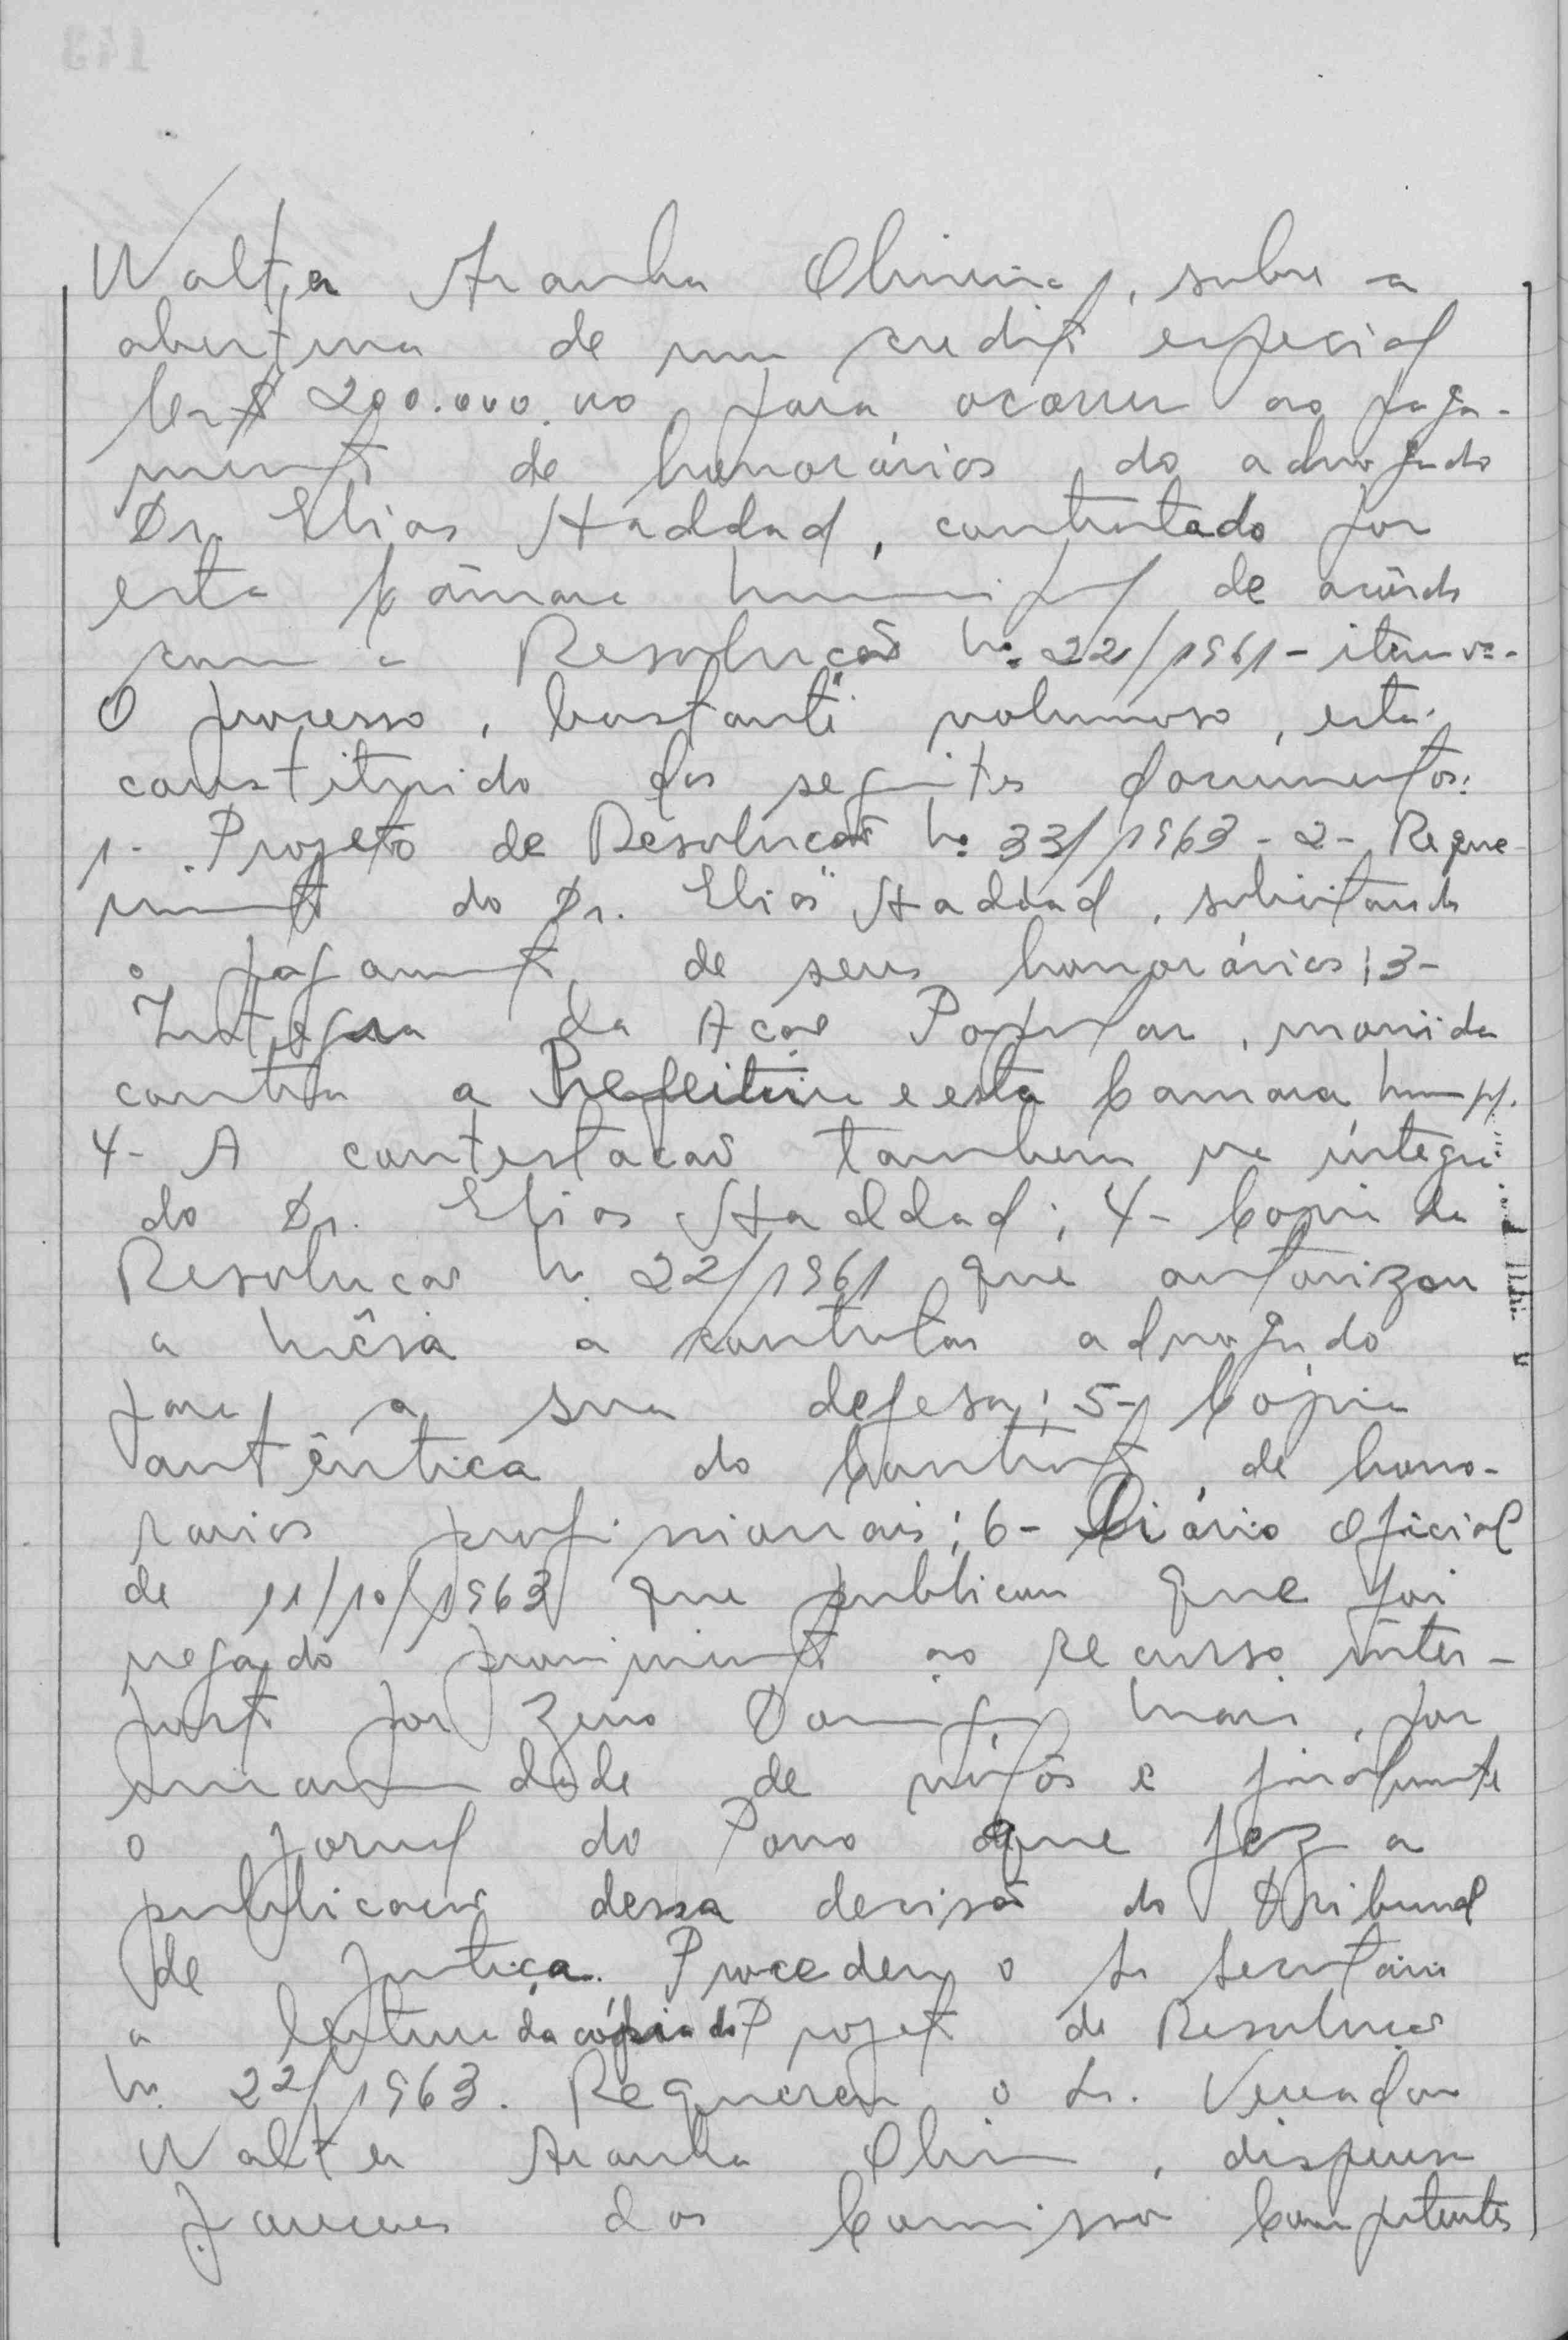 Walter Aranha Oliveira, sobre a
abertura de um credito especial
Cr$ 200.000.00 para ocorrer ao paga-
mento de honorários do advogado
Dr. Elias Haddad, contratado por
esta Câmara Municipal, de acôrdo
com a Resolução Nº 22/1961 - item
O processo, bastante volumoso, esta
constituido dos seguintes documentos:
1- Projeto de Resolução Nº 33/1963 - 2- Reque-
rimento do Dr. Elias Haddad, solicitando
o pagamento de seus honorários; 3-
Integra da Ação Popular, movida
contra a Prefeitura e esta Camara
4- A contestação tambem na íntegra
do Dr. Elias Haddad; 4- Copia da
Resolucão N. 22/1961 que autorizou
a Mêsa a contratar advogado
para a sua defesa; 5- Cópia
autêntica do Contrato de hono-
rarios profissionais; 6- Diário Oficial
de 11/10/1963 que publicou que foi
negado provimento ao recurso inter-
posto por Zeno Domingos Maia, por
unanimidade de votos e finalmente
o Jornal do Povo que fez a
publicação dessa decisão do Tribunal
de Justiça. Procedeu o Sr Secretario
a leitura da cópia do Projeto de Resolução
N. 22/1963. Requereu o Sr. Vereador
Walter Aranha Oliveira, dispensa
pareceres das Comissão Competentes